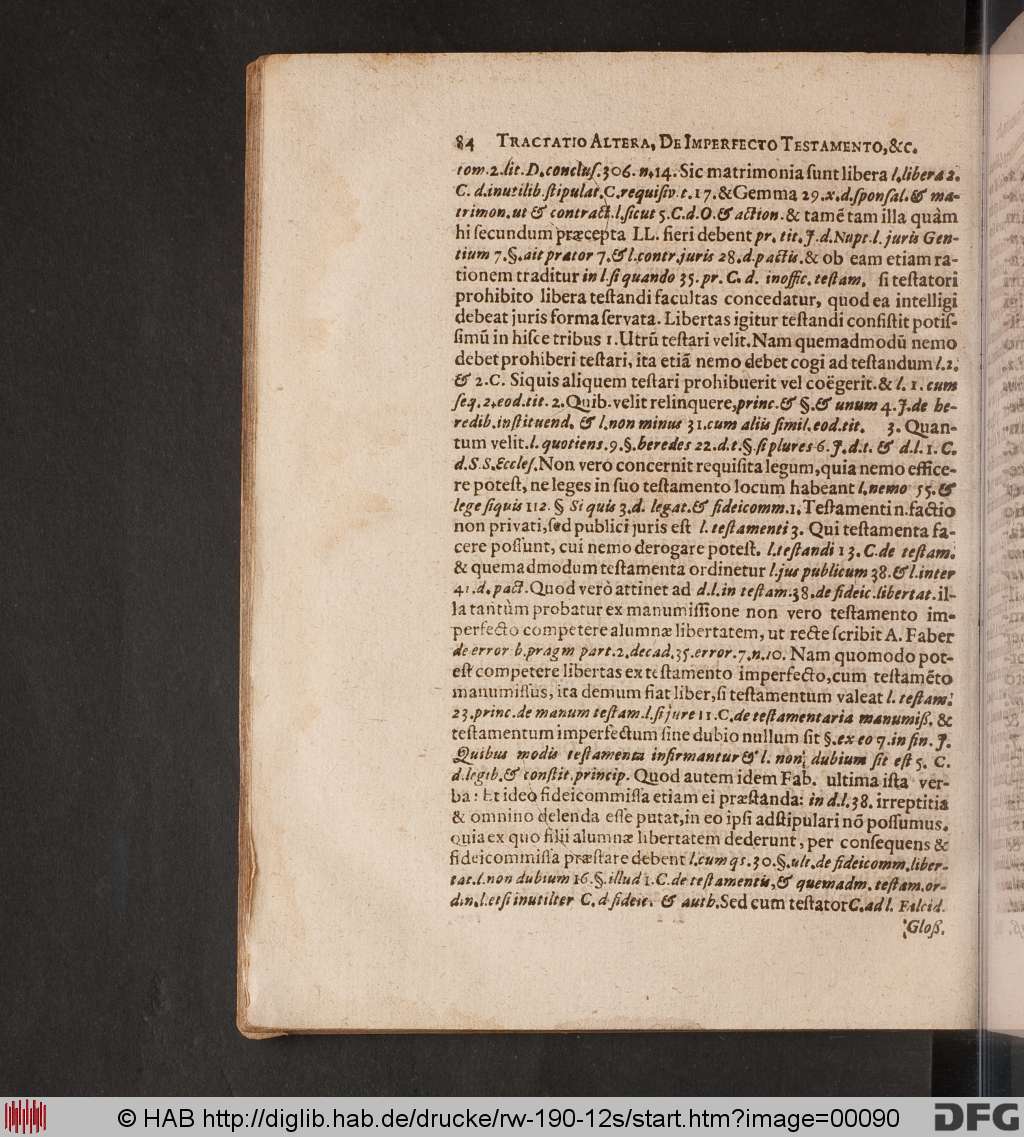 84 TRACTATIO ALTERA, DE IMPERFECTO TESTAMENTO, &c.
tom. 2. lit. D. concluſ. 306. n. 14. Sic matrimonia ſunt libera l. libera 2.
C. d. inutilib. ſtipulat. C. requiſiv. t. 17. & Gemma 29. x. d. ſponſal. & ma-
trimon. ut & contract. l. ſicut 5. C. d. O. & action. & tamẽ tam illa quàm
hi ſecundum præcepta LL. fieri debent pr. tit. J. d. Nupt. l. juris Gen-
tium 7. §. ait prætor 7. & l. contr. juris 28. d. pactis. & ob eam etiam ra-
tionem traditur in l. ſi quando 35. pr. C. d. inoffic. teſtam. ſi teſtatori
prohibito libera teſtandi facultas concedatur, quod ea intelligi
debeat juris forma ſervata. Libertas igitur teſtandi conſiſtit potiſ-
ſimũ in hiſce tribus 1. Utrũ teſtari velit. Nam quemadmodũ nemo
debet prohiberi teſtari, ita etiã nemo debet cogi ad teſtandum l. 2.
& 2. C. Siquis aliquem teſtari prohibuerit vel coëgerit. & l. 1. cum
ſeq. 2. eod. tit. 2. Quib. velit relinquere, princ. & §. & unum 4. J. de he-
redib. inſtituend. & l. non minus 31. cum aliis ſimil. eod. tit. 3. Quan-
tum velit. l. quotiens. 9. §. heredes 22. d. t. §. ſi plures 6. J. d. t. & d. l. 1. C.
d. S. S. Eccleſ. Non vero concernit requiſita legum, quia nemo effice-
re poteſt, ne leges in ſuo teſtamento locum habeant l. nemo 55. &
lege ſiquis 112. § Si quis 3. d. legat. & fideicomm. 1. Teſtamenti n. factio
non privati, ſed publici juris eſt l. teſtamenti 3. Qui teſtamenta fa-
cere poſſunt, cui nemo derogare poteſt. l. teſtandi 13. C. de teſtam.
& quemadmodum teſtamenta ordinetur l. jus publicum 38. & l. inter
41. d. pact. Quod verò attinet ad d. l. in teſtam. 38. de fideic. libertat. il-
la tantùm probatur ex manumiſſione non vero teſtamento im-
perfecto competere alumnæ libertatem, ut recte ſcribit A. Faber
de error b. pragm part. 2. decad. 35. error. 7. n. 10. Nam quomodo pot-
eſt competere libertas ex teſtamento imperfecto, cum teſtamẽto
manumiſſus, ita demum fiat liber, ſi teſtamentum valeat l. teſtam.
23. princ. de manum teſtam. l. ſi jure 11. C. de teſtamentaria manumiß. &
teſtamentum imperfectum ſine dubio nullum ſit §. ex eo 7. in fin. J.
Quibus modis teſtamenta infirmantur & l. non dubium ſit eſt 5. C.
d. legib. & conſtit. princip. Quod autem idem Fab. ultima iſta ver-
ba: Et ideo fideicommiſſa etiam ei præſtanda: in d. l. 38. irreptitia
& omnino delenda eſſe putat, in eo ipſi adſtipulari nõ poſſumus.
quia ex quo filii alumnæ libertatem dederunt, per conſequens &
fideicommiſſa præſtare debent l. cum qs. 30. §. ult. de fideicomm. liber-
tat. l. non dubium 16. §. illud 1. C. de teſtamentis, & quemadm. teſtam. or-
din. l. etſi inutiliter C. d fideic. & auth. Sed cum teſtator C. ad l. Falcid.
Gloß.
© HAB http://diglib.hab.de/drucke/rw-190-12s/start.htm?image=00090
DFG